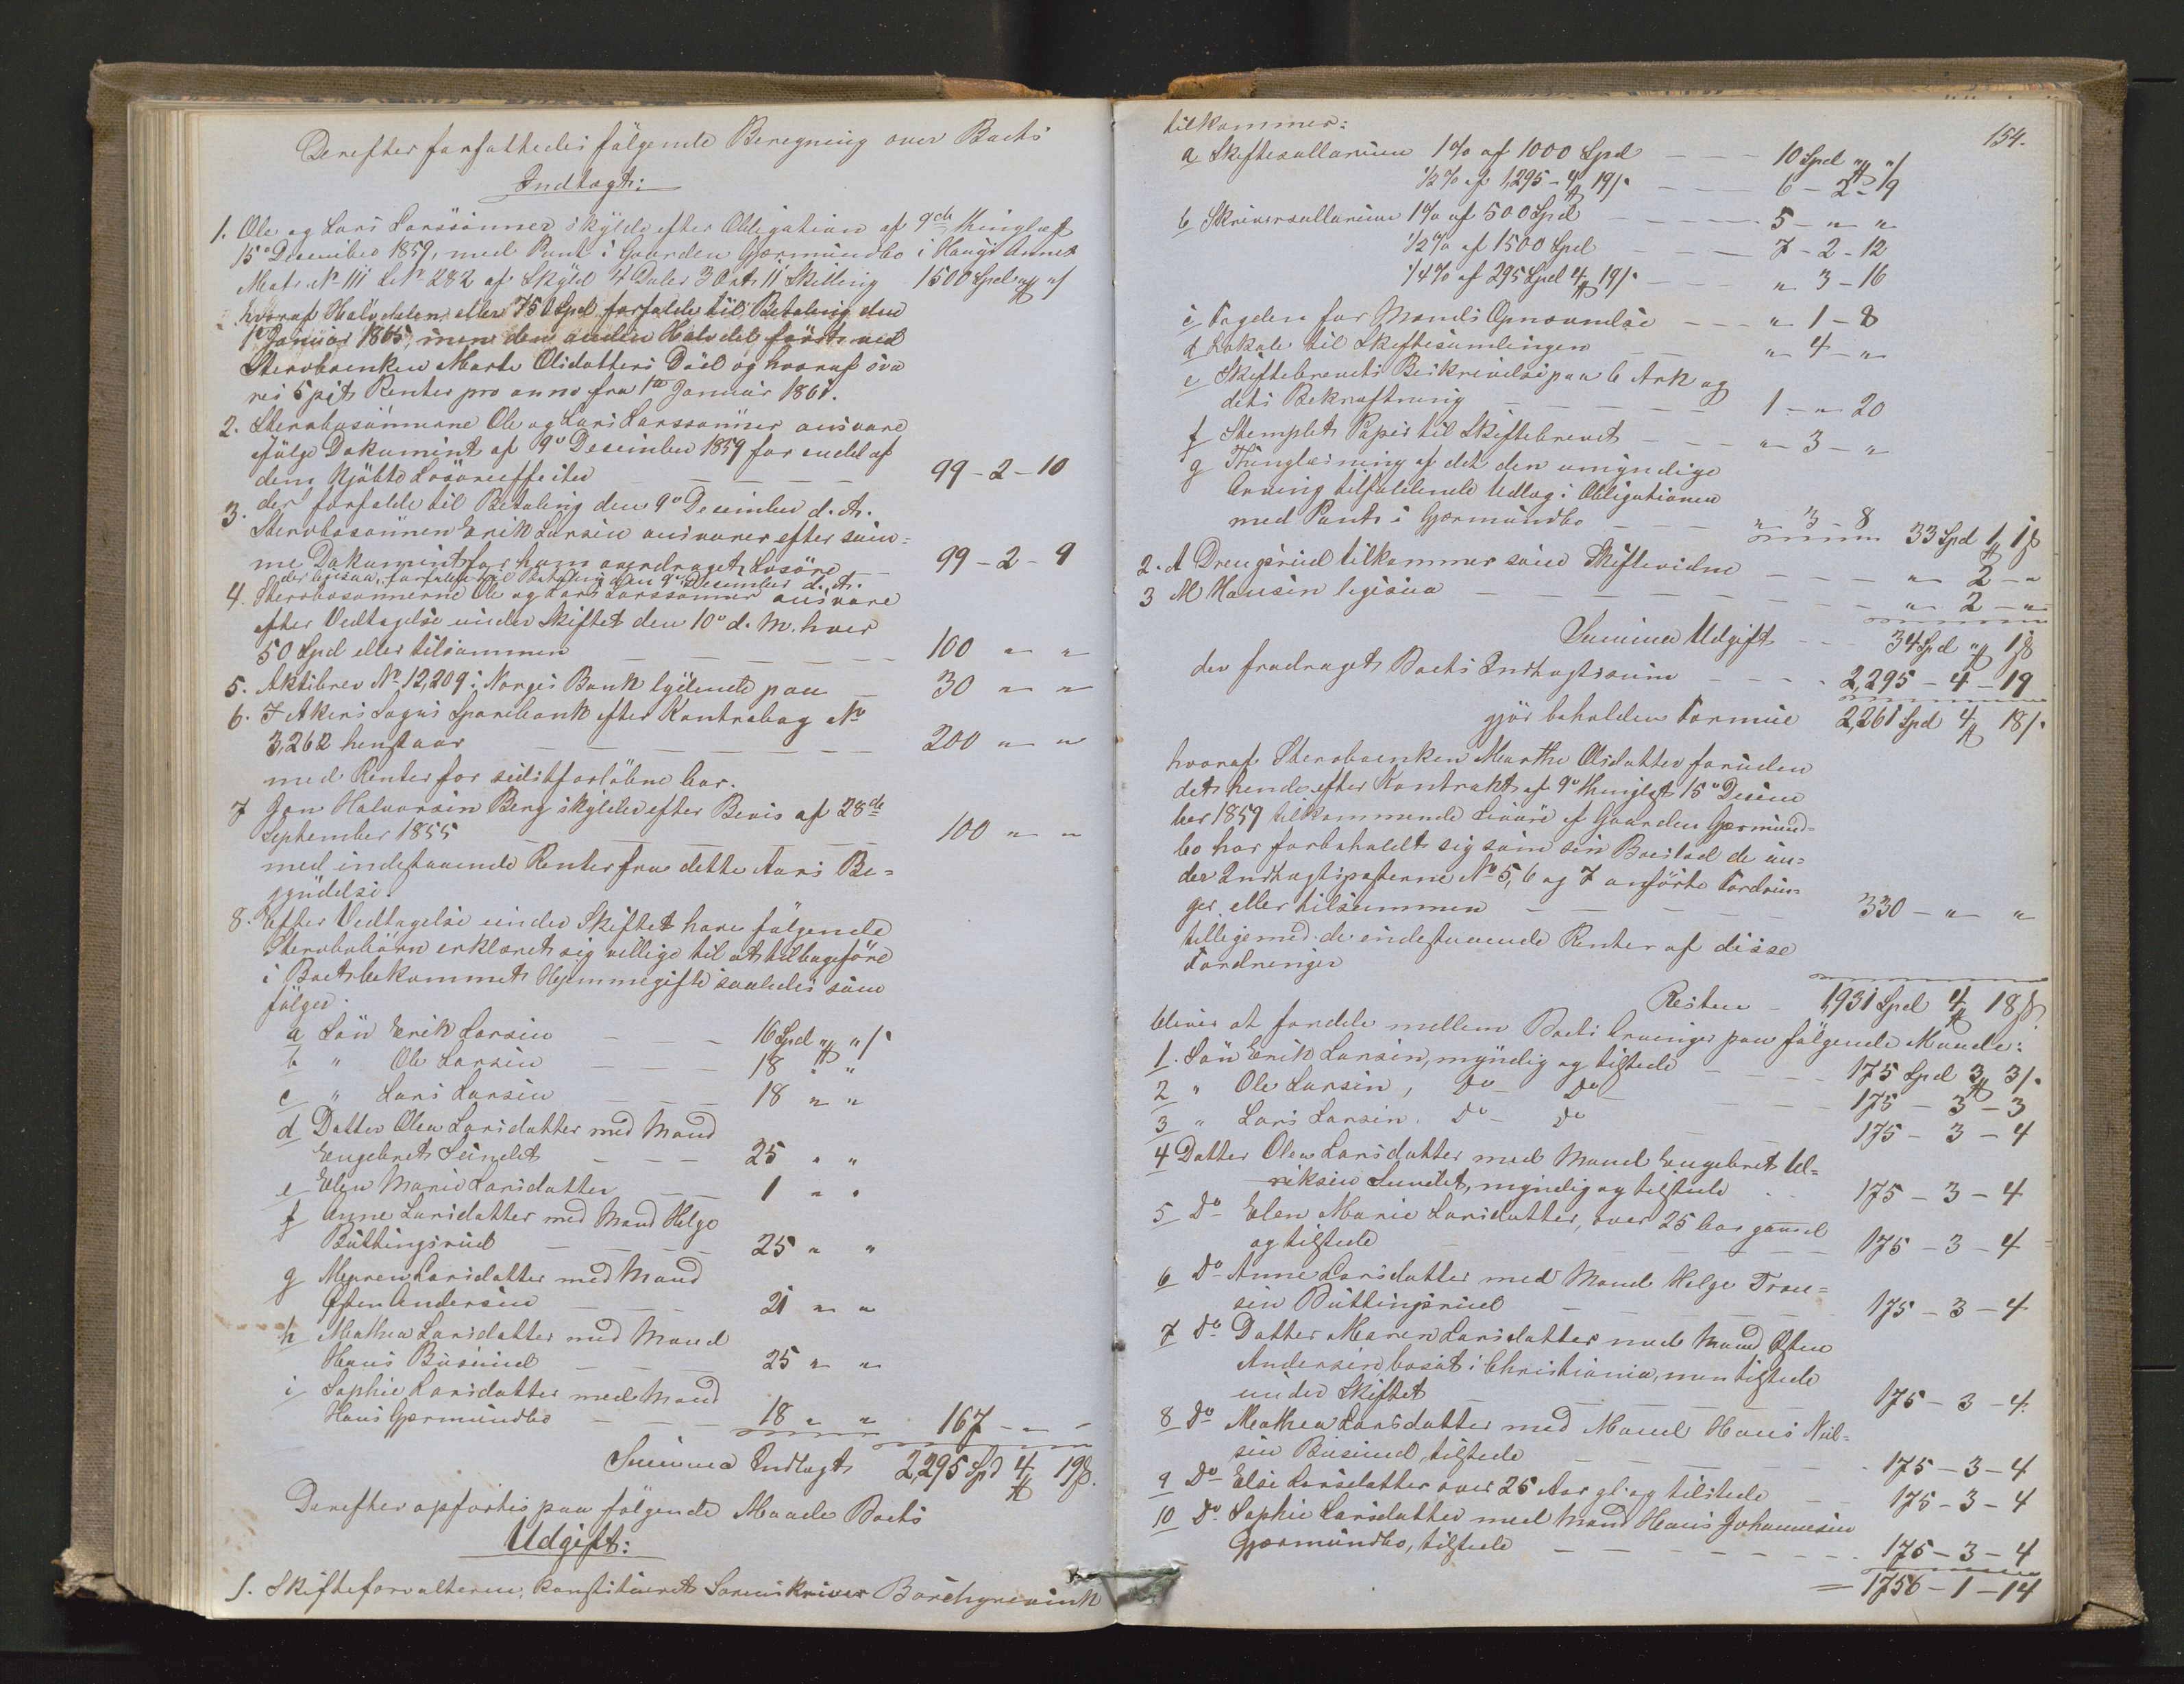 Derefter forfattedes følgende Beregning over Boets
Indtægt:
1. Ole og Lars Larssønner skylde efter Obligation af 9de thinglæst
15de December 1859, med Pant i Gaarden Gjermundbo i Haugs Annex
Matr. No 111 LNo 282 af Skyld 4 Daler 3 Ort 11 Skilling 1500 Spd " "
hvoraf Halvdelen eller 750 Spd forfalde til Betaling den
1ste Januar 1865, men den anden Halvdel først ved
Stervboenken Marte Olsdatters Død og hvoraf sva
res 5 pCt Renter pro anno fra 1ste Januar 1861.
2. Stervbosønnerne Ole og Lars Larssønner ansvare
ifølge Dokument af 9de December 1859 for endel af
dem kjøbte Løsøreeffecter 99 - 2 - 10
der forfalde til Betaling den 9de December d. A.
3. Stervbosønnen Erik Larsen ansvarer efter sam=
me Dokument for ham overdraget Løsøre 99 - 2 - 9
der ligesaa forfalder til Betaling den 9de December d. A.
4. Stervbosønnerne Ole og Lars Larssønner ansvare
efter Vedtagelse under Skiftet den 10de d. M. hver
50 Spd eller tilsammen 100 " "
5. Aktiebrev No 12,209 i Norges Bank lydende paa 30 " "
6. I Akers Sogns Sparebank efter Kontrabog No
3,262 henstaar 200 " "
med Renter for sidstforløbne Aar.
7 Jon Halvorsen Berg skylder efter Bevis af 28de
September 1855 100 " "
med indestaaende Renter fra dette Aars Be=
gyndelse.
8. Efter Vedtagelse under Skiftet have følgende
Stervbobørn erklæret sig villige til at tilbageføre
i Boet bekommet Hjemmegifte saaledes som
følger.
a Søn Erik Larsen 16 Spd " "
b " Ole Larsen 18 " "
c " Lars Larsen 18 " "
d Datter Olea Larsdatter med Mand
Engebret Sundet 25 " "
e Elen Marie Larsdatter 1 " "
f Anne Larsdatter med Mand Helge
Buttingsrud 25 " "
g Maren Larsdatter med Mand
Østen Andersen 21 " "
h Mathea Larsdatter med Mand
Hans Busund 25 " "
i Sophie Larsdatter med Mand
Hans Gjermundbo 18 " " 167 - " -
Summa Indtægt 2,295 Spd 4 19 s.
Derefter opførtes paa følgende Maade Boets
Udgift:
1. Skifteforvalteren, konstitueret Sorenskriver Borchgrevink
154.
tilkommer:
a Skiftesallarium 1% af 1000 Spd 10 Spd " "
1/2% af 1,295 - 4 19 s. 6 - 2 - 19
b Skriversallarium 1% af 500 Spd 5 - " "
1/2% af 1500 Spd 7 - 2 - 12
1/4% af 295 Spd 4 19 s. " 3 - 16
c Fogden for Mænds Opnævnelse " 1 - 8
d Lokale til Skiftesamlingen " 4 - "
e Skiftebrevets Beskrivelse paa 6 Ark og
dets Bekræftning 1 - " 20
f Stemplet Papir til Skiftebrevet " 3 - "
g Thinglæsning af det den umyndige
Arving tilfaldende Udlæg i Obligationen
med Pant i Gjermundbo " 3 - 8 33 Spd 1 18
2. A Drengsrud tilkommer som Skiftevidne " 2 - "
3 M Hansen ligesaa " 2 - "
Summa Udgift 34 Spd " 18
der fradraget Boets Indtægtssum 2,295 - 4 - 19
gjør beholden Formue 2,261 Spd 4 18 s.
hvoraf Stervboenken Marthe Olsdatter foruden
det hende efter Kontrakt af 9de thinglæst 15de Decem
ber 1859 tilkommende Livøre af Gaarden Gjermund=
bo har forbeholdt sig som sin Boeslod de un=
der Indtægtsposterne No 5, 6 og 7 anførte Fordrin=
ger eller tilsammen 330 - " "
tilligemed de indestaaende Renter af disse
Fordringer
Resten 1,931 Spd 4 18 s.
bliver at fordele mellem Boets Arvinger paa følgende Maade:
1. Søn Erik Larsen, myndig og tilstede 175 Spd 3 3 s.
2 " Ole Larsen, Do Do 175 - 3 - 3
3 " Lars Larsen. Do Do 175 - 3 - 4
4 Datter Olea Larsdatter med Mand Engebret Ul=
riksen Sundet, myndig og tilstede 175 - 3 - 4
5 Do Elen Marie Larsdatter, over 25 Aar gammel
og tilstede 175 - 3 - 4
6 Do Anne Larsdatter med Mand Helge Troe=
sen Buttingsrud 175 - 3 - 4
7 Do Datter Maren Larsdatter med Mand Østen
Andersen bosat i Christiania, men tilstede
under Skiftet 175 - 3 - 4.
8 Do Mathea Larsdatter med Mand Hans Niel=
sen Busund, tilstede 175 - 3 - 4
9 Do Else Larsdatter over 25 Aar gl. og tilstede 175 - 3 - 4
10 Do Sophie Larsdatter med Mand Hans Johannesen
Gjermundbo, tilstede 175 - 3 - 4
= 1756 - 1 - 14